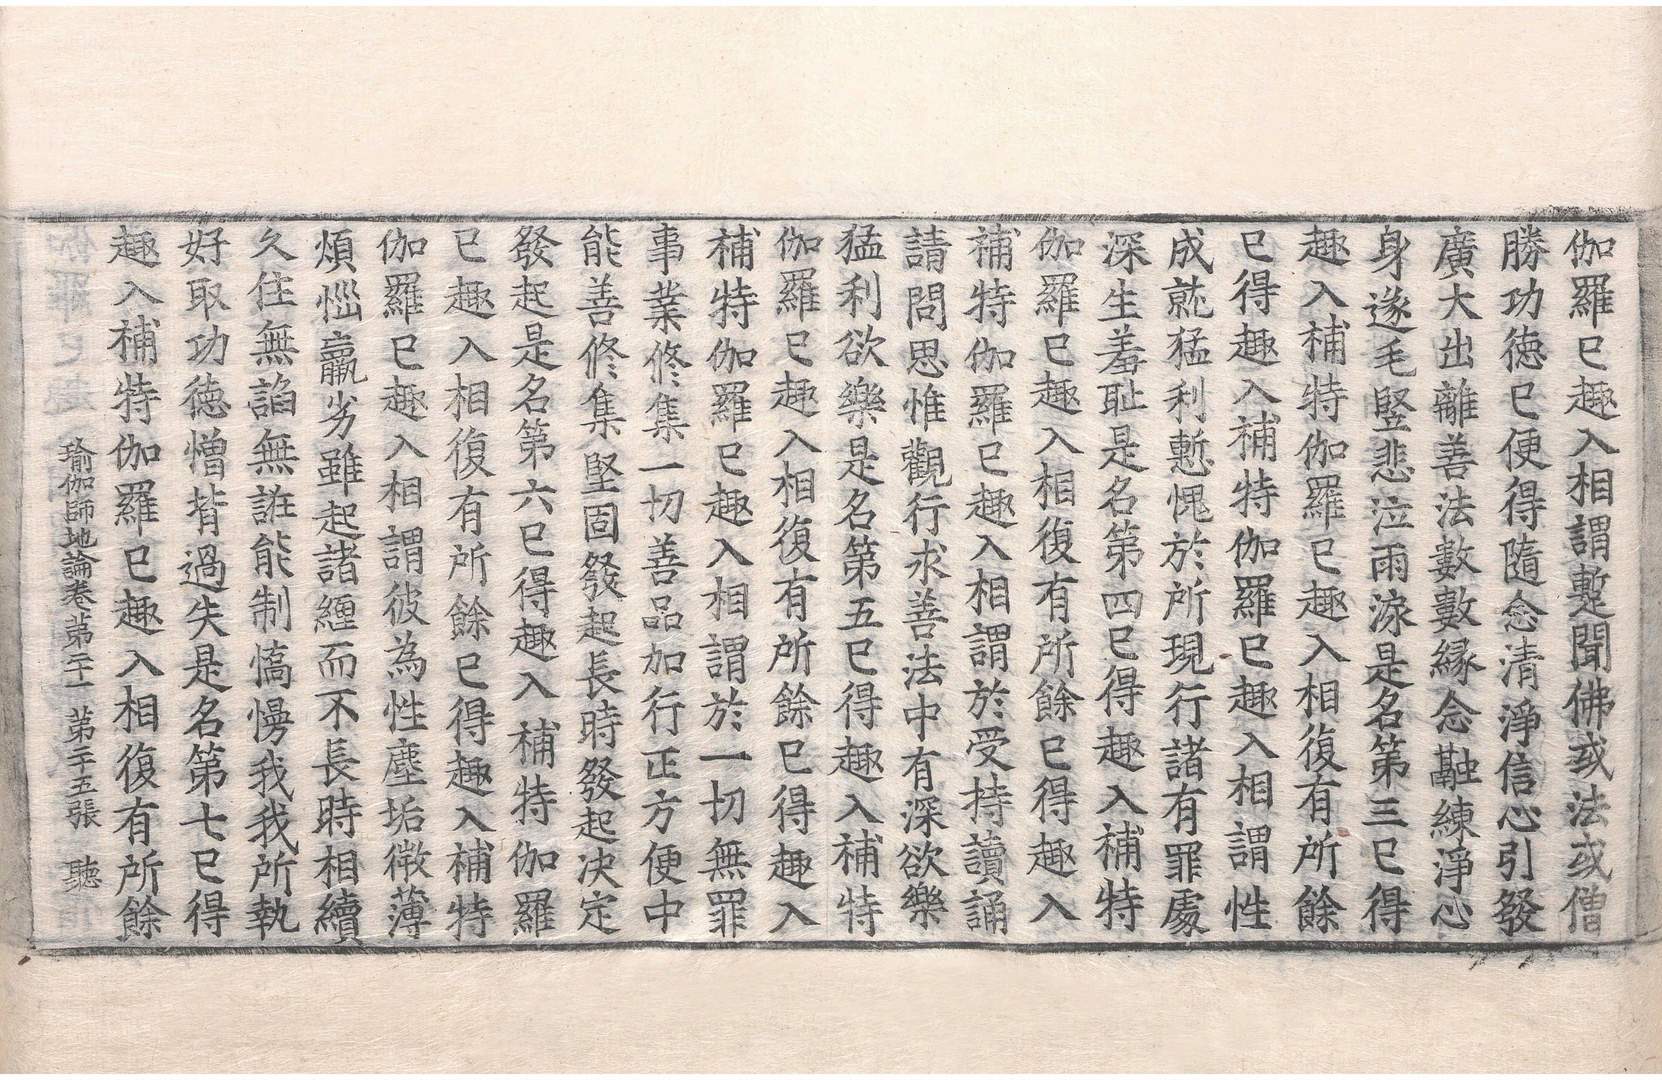 伽羅已趣入相謂蹔聞佛或法或僧
勝功徳已便得隨念清淨信心引發
廣大出離善法數數緣念融練淨心
身遂毛竪悲泣雨淚是名第三已得
趣入補特伽羅已趣入相復有所餘
已得趣入補特伽羅已趣入相謂性
成就猛利慙愧於所現行諸有罪處
深生羞耻是名第四已得趣入補特
伽羅已趣入相復有所餘已得趣入
補特伽羅已趣入相謂於受持讀誦
請問思惟觀行求善法中有深欲樂
猛利欲樂是名第五已得趣入補特
伽羅已趣入相復有所餘已得趣入
補特伽羅已趣入相謂於一切無罪
事業修集一切善品加行正方便中
能善修集堅固發起長時發起决定
發起是名第六已得趣入補特伽羅
已趣入相復有所餘已得趣入補特
伽羅已趣入相謂彼為性塵垢微薄
煩惱羸劣雖起諸纏而不長時相續
久住無諂無誑能制憍慢我我所執
好取功徳憎背過失是名第七已得
趣入補特伽羅已趣入相復有所餘
瑜伽師地論卷苐二十一 苐二十五張 聽